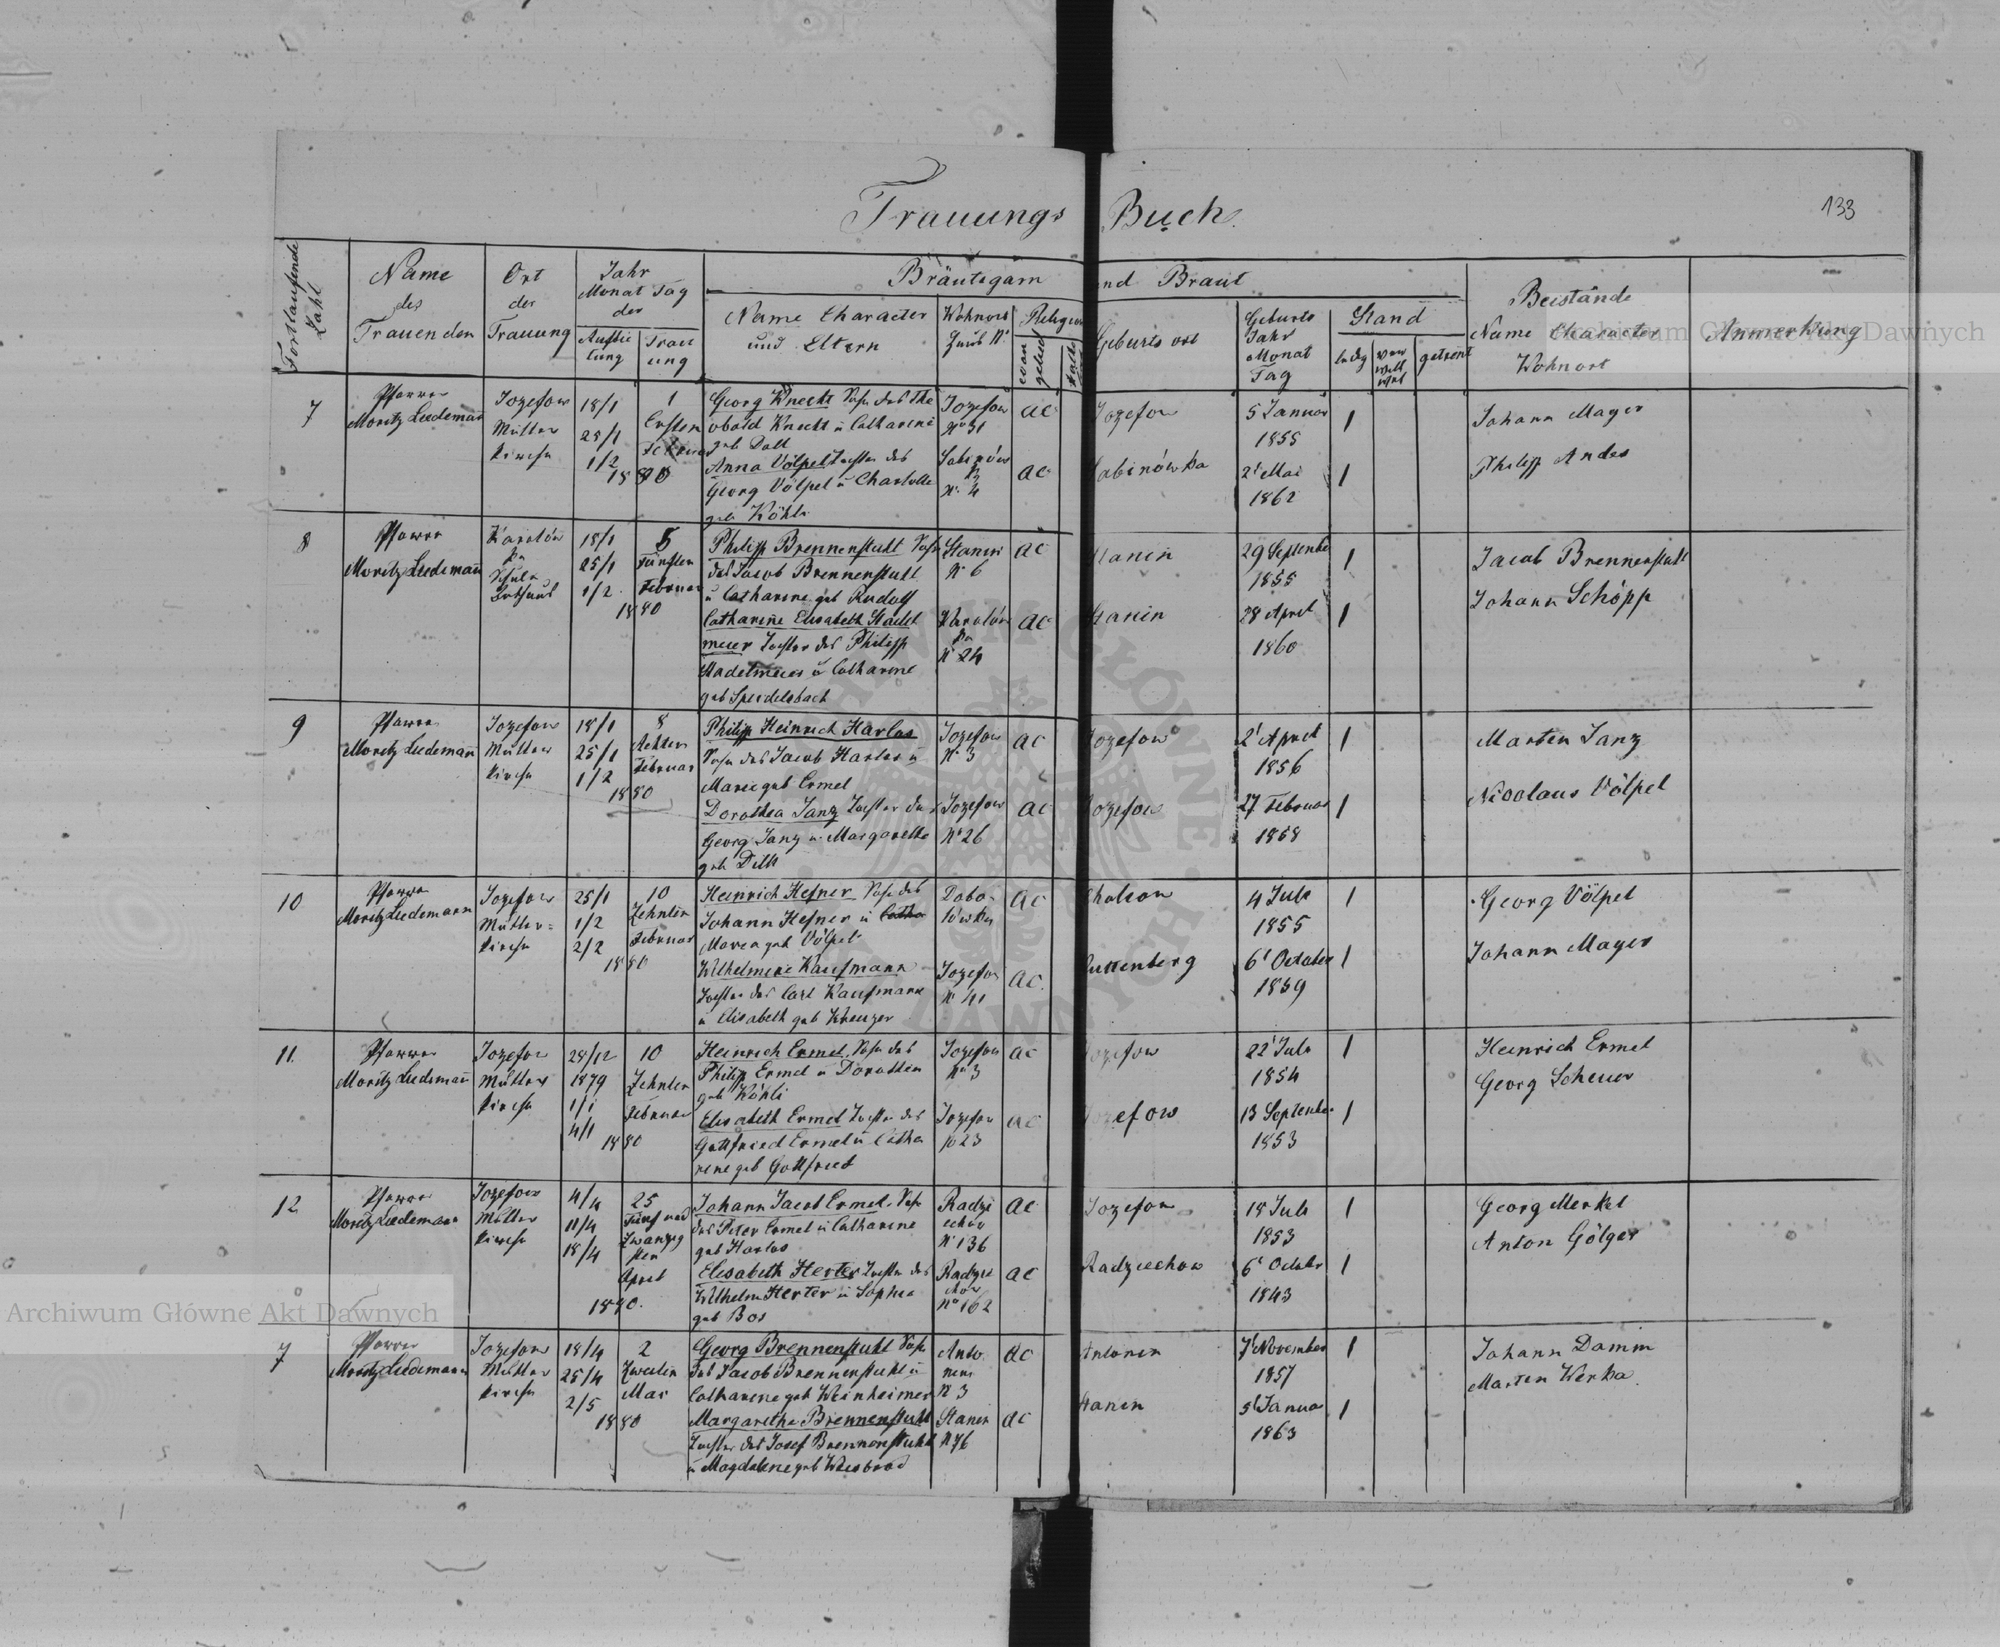 Trauungs Buch.
133
Fortlaufende Zahl
Name des Trauenden
Ort der Trauung
Jahr Monat Tag der
Aufbie tung
Trau ung
Bräutigam und Braut
Name Character und Eltern
Wohnort Haus N.
Religion
evan gelisch
Geburts ort
Geburts Jahr Monat Tag
Stand
ledig
ver witt wet
getrent
Beistände
Name Character
Wohnort
Anmerkung
7
Pfarrer
Moritz Luedemann
Jozefow
Mutter
kirche
18/1
25/1
1/2
1
Ersten
Februar
1880
Georg Knecht Sohn des The
obald Knecht u Catharine
geb Doll
Jozefow
No 31
ac
Jozefow
5 Januar
1855
1
Anna Völpel Tochter des
Georg Völpel u Charlotte
geb Köhli
Sabinów
ka
N. 4
ac
Sabinówka
2t Mai
1862
1
Johann Mayer
Philipp Andes
8
Pfarrer
Moritz Luedemann
Karolów
ka
Schule
Bethaus
18/1
25/1
1/2
5
Fünften
Februar
1880
Philipp Brennenstuhl Sohn
des Jacob Brennenstuhl
u Catharine geb Rudolf
Stanin
N. 6
ac
Stanin
29 September
1855
1
Catharine Elisabeth Stadel
meier Tochter des Philipp
Stadelmeier u Catharine
geb Speidelsbach
Karolów
ka
N. 24
ac
Stanin
28 April
1860
1
Jacob Brennenstuhl
Johann Schöpp
9
Pfarrer
Moritz Luedemann
Jozefow
Mutter
kirche
18/1
25/1
1/2
8
Achten
Februar
1880
Philipp Heinrich Harlos
Sohn des Jacob Harlos u
Marie geb Ermel
Jozefow
N. 3
ac
Jozefow
2t April
1856
1
Dorothea Janz Tochter des
Georg Janz u Margarethe
geb Dill
Jozefow
No 26
ac
Jozefow
27 Februar
1858
1
Marten Janz
Nicolaus Völpel
10
Pfarrer
Moritz Luedemann
Jozefow
Mutter=
kirche
25/1
1/2
2/2
10
Zehnten
Februar
1880
Heinrich Hefner Sohn des
Johann Hefner u Catha
Maria geb Völpel
ac
4 Juli
1855
1
Wilhelmine Kaufmann
Tochter des Carl Kaufmann
u Elisabeth geb Kreuzer
Jozefow
N 41
ac.
6t October
1859
1
Georg Völpel
Johann Mayer
11.
Pfarrer
Moritz Luedemann
Jozefow
Mutter
kirche
28/12
1879
1/1
4/1
10
Zehnten
Februar
1880
Heinrich Ermel Sohn des
Philip Ermel u Dorothea
geb Köhli
Jozefow
No 3
ac
Jozefow
22t Juli
1854
1
Elisabeth Ermel Tochter des
Gottfried Ermel u Catha
rine geb Gottfried
Jozefow
No 23
ac
Jozefow
13 September
1853
1
Heinrich Ermel
Georg Scheuer
12
Pfarrer
Moritz Luedemann
Jozefow
Mutter
kirche
4/4
11/4
18/4
25
Fünf und
Zwanzig
sten
April
1880.
Johann Jacob Ermel. Sohn
des Peter Ermel u Catharine
geb Harlos
Radzi
echów
N 136
ac
Jozefow
18 Juli
1853
1
Elisabeth Herter Tochter des
Wilhelm Herter u Sophia
geb Bos
Radzie
chów
No 162
ac
Radziechow
6t October
1843
1
Georg Merkel
Anton Gölger
7
Pfarrer
Moritz Luedemann
Jozefow
Mutter
kirche
18/4
25/4
2/5
2
Zweiten
Mai
1880
Georg Brennenstuhl Sohn
des Jacob Brennenstuhl u
Catharine geb Weinheimer
Anto
nin
N 3
ac
Antonin
7t November
1857
1
Margarethe Brennenstuhl
Tochter des Josef Brennenstuhl
u Magdalene geb Weisbrod
Stanin
N 76
ac
Stanin
5t Januar
1863
1
Johann Damm
Marten Werka
Archiwum Główne Akt Dawnych
Archiwum Główne Akt Dawnych